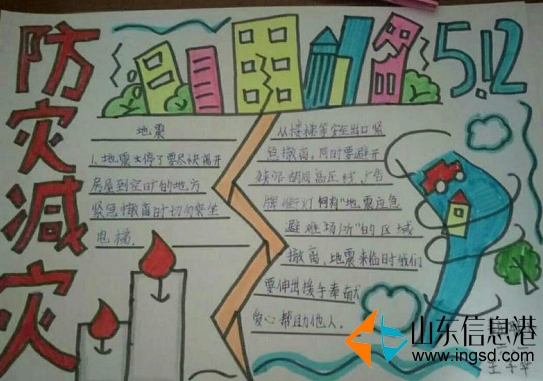 防灾减灾
5.12
地震
人地震士停了要尽快离开
房屋到空旷的地方
紧急撤离时切勿乘坐
电梯.
从楼梯等安全出口紧
急撤离,同时要避开
高压线,广告
牌 街灯 何有"地震应急
避难场所"的区域
撤离,地震来临时我们
要伸出援手奉献
爱心帮助他人.
山东信息港
www.ingsd.com